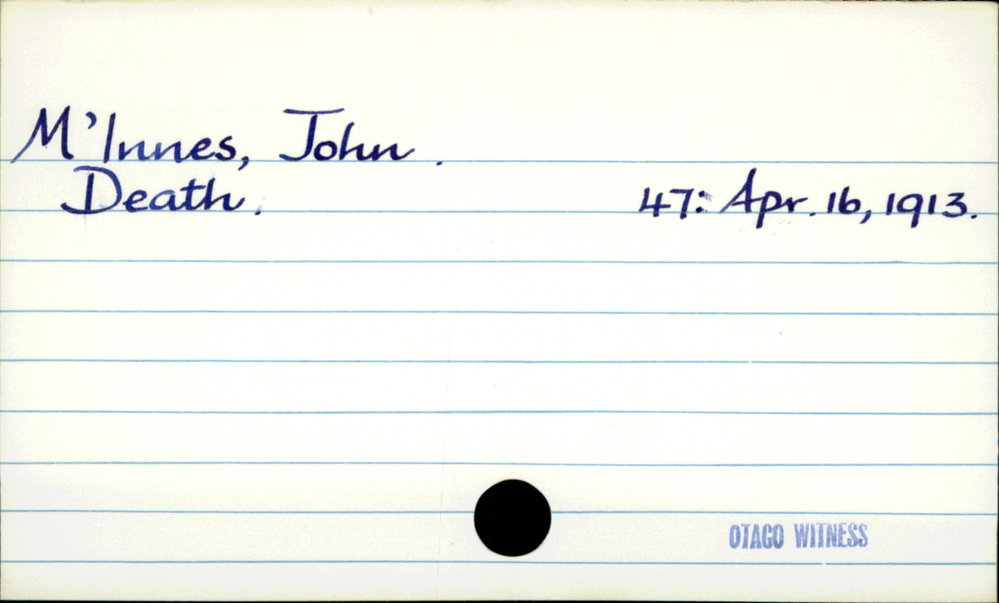 M'Innes, John.
Death. 47: Apr. 16, 1913.
OTAGO WITNESS